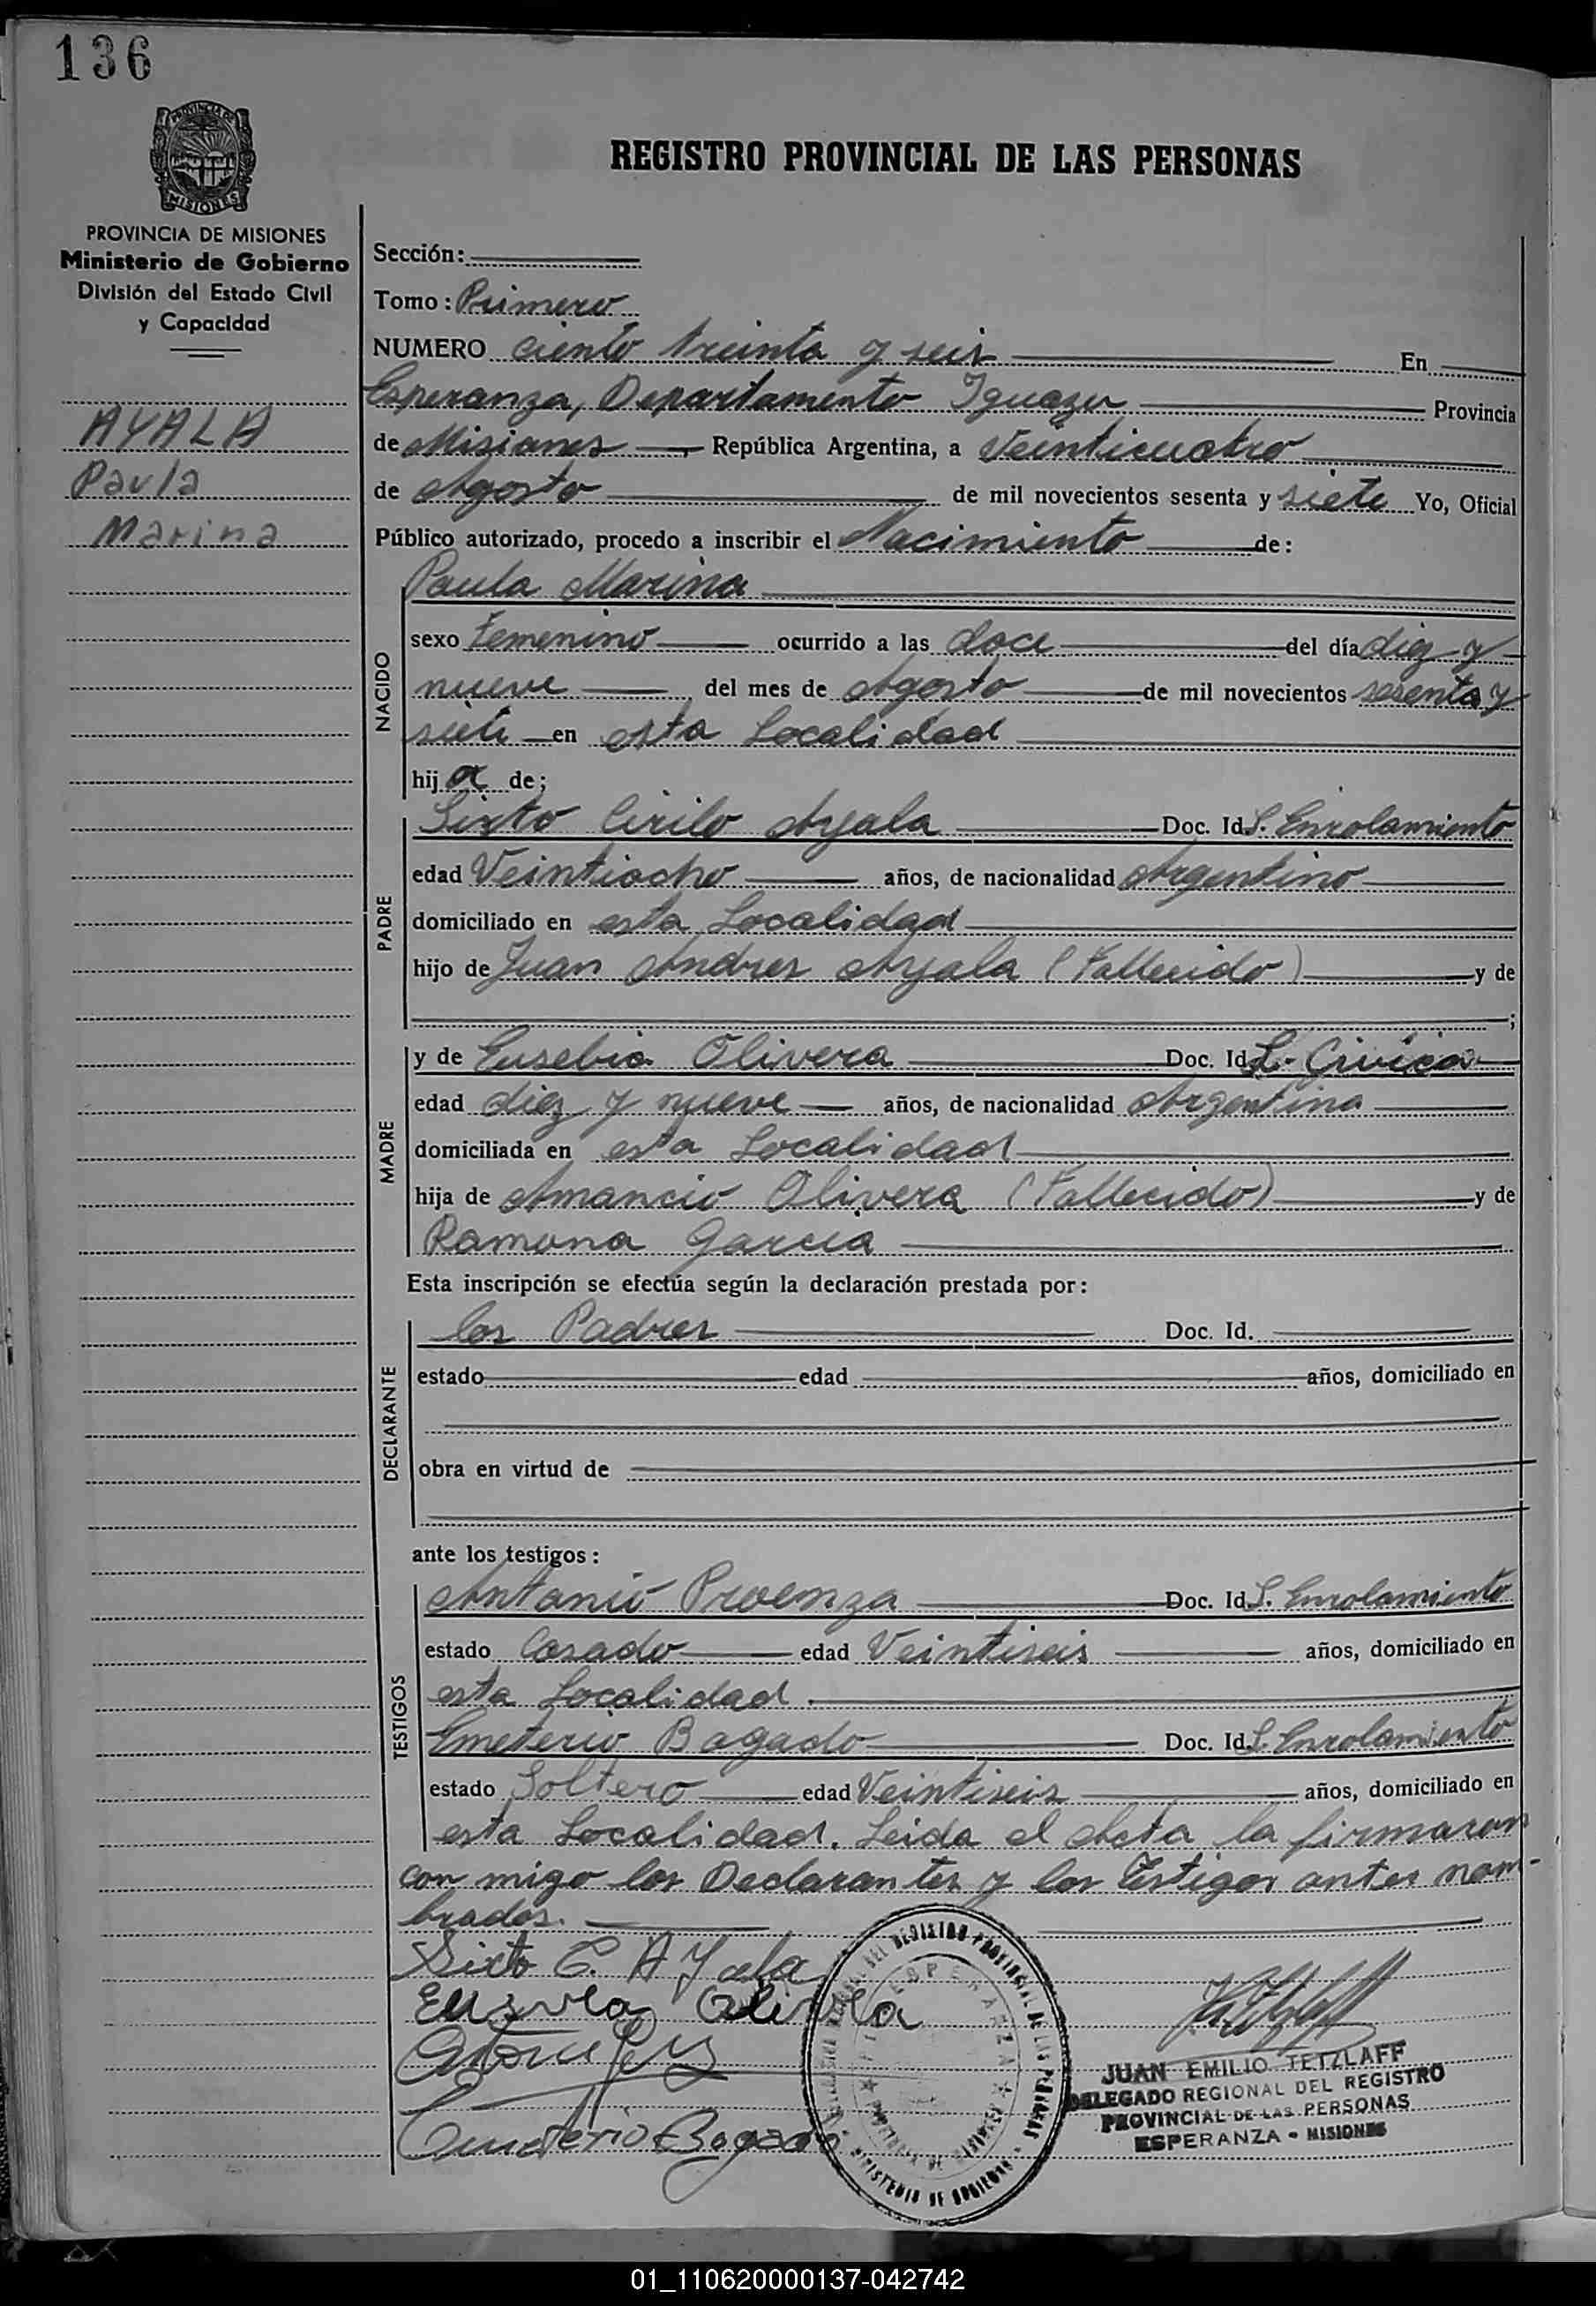 136
PROVINCIA DE MISIONES
REGISTRO PROVINCIAL DE LAS PERSONAS
PROVINCIA DE MISIONES
Ministerio de Gobierno
División del Estado Civil
y Capacidad
AYALA
Paula
Marina
Sección:
Tomo: Primero
NUMERO ciento treinta y seis En
Esperanza, Departamento Iguazu Provincia
de Misiones República Argentina, a Veinticuatro
de Agosto de mil novecientos sesenta y siete Yo, Oficial
Público autorizado, procedo a inscribir el Nacimiento de:
NACIDO
Paula Marina
sexo Femenino ocurrido a las doce del día diez y
nueve del mes de Agosto de mil novecientos sesenta y
siete en esta Localidad
hija de;
PADRE
Sixto Cirilo Ayala Doc. Id. L. Enrolamiento
edad Veintiocho años, de nacionalidad Argentino
domiciliado en esta Localidad
hijo de Juan Andres Ayala (Fallecido) y de
;
MADRE
y de Eusebia Olivera Doc. Id L. Civica
edad diez y nueve años, de nacionalidad Argentina
domiciliada en esta Localidad
hija de Amancio Olivera (Fallecido) y de
Ramona Garcia
Esta inscripción se efectúa según la declaración prestada por:
DECLARANTE
los Padres Doc. Id.
estado edad años, domiciliado en
obra en virtud de
ante los testigos:
TESTIGOS
Antonio Proenza Doc. Id L. Enrolamiento
estado Casado edad Veintiseis años, domiciliado en
esta Localidad.
Emeterio Bogado Doc. Id L. Enrolamiento
estado Soltero edad Veintiseis años, domiciliado en
esta Localidad. Leida el Acta la firmaron
con migo los Declarantes y los Testigos antes nom-
brados.
Sixto C. AYala
Emeterio Bogado
ESPERANZA
MINISTERIO DE GOBIERNO
JUAN EMILIO TETZLAFF
DELEGADO REGIONAL DEL REGISTRO
PROVINCIAL DE LAS PERSONAS
ESPERANZA - MISIONES
01_110620000137-042742